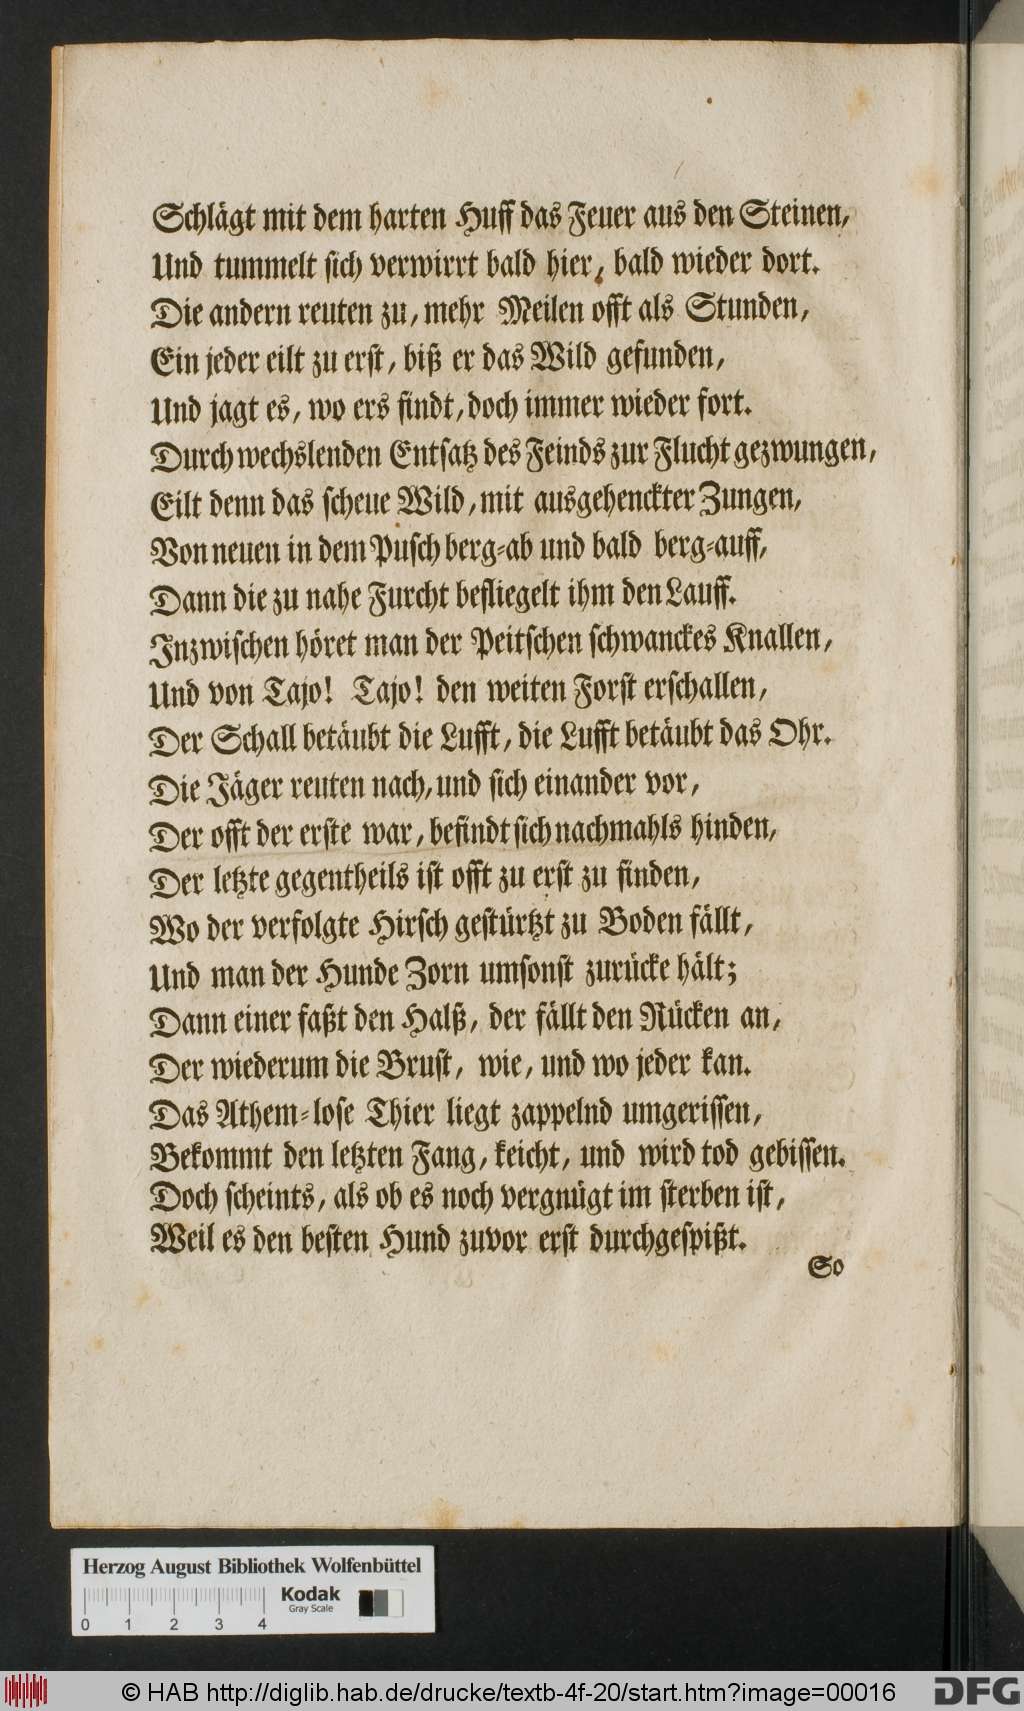 Schlägt mit dem harten Huff das Feuer aus den Steinen,
Und tummelt sich verwirrt bald hier, bald wieder dort.
Die andern reuten zu, mehr Meilen offt als Stunden,
Ein jeder eilt zu erst, biß er das Wild gefunden,
Und jagt es, wo ers findt, doch immer wieder fort.
Durch wechslenden Entsatz des Feinds zur Flucht gezwungen,
Eilt denn das scheue Wild, mit ausgehenckter Zungen,
Von neuen in dem Pusch berg-ab und bald berg-auff,
Dann die zu nahe Furcht befliegelt ihm den Lauff.
Inzwischen höret man der Peitschen schwanckes Knallen,
Und von Tajo! Tajo! den weiten Forst erschallen,
Der Schall betäubt die Lufft, die Lufft betäubt das Ohr.
Die Jäger reuten nach, und sich einander vor,
Der offt der erste war, befindt sich nachmahls hinden,
Der letzte gegentheils ist offt zu erst zu finden,
Wo der verfolgte Hirsch gestürtzt zu Boden fällt,
Und man der Hunde Zorn umsonst zurücke hält;
Dann einer faßt den Halß, der fällt den Rücken an,
Der wiederum die Brust, wie, und wo jeder kan.
Das Athem-lose Thier liegt zappelnd umgerissen,
Bekommt den letzten Fang, keicht, und wird tod gebissen.
Doch scheints, als ob es noch vergnügt im sterben ist,
Weil es den besten Hund zuvor erst durchgespißt.
So
Herzog August Bibliothek Wolfenbüttel
Kodak
Gray Scale
0 1 2 3 4
© HAB http://diglib.hab.de/drucke/textb-4f-20/start.htm?image=00016
DFG